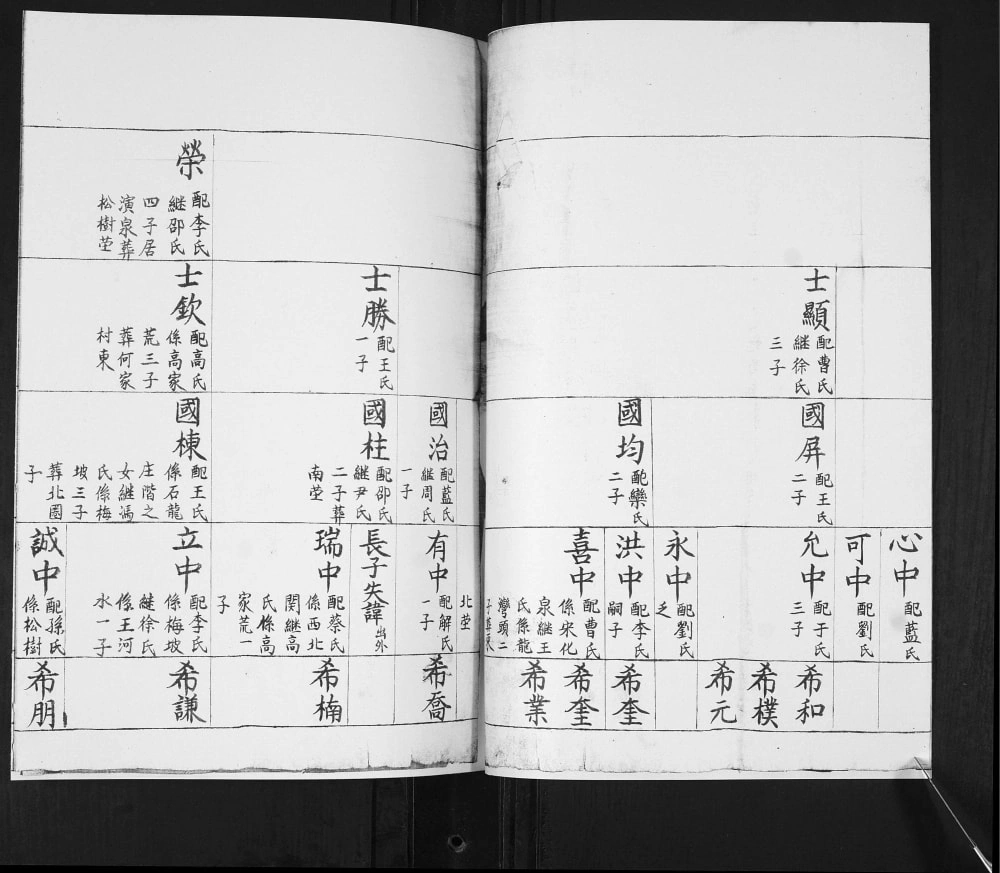 士顯
配曹氏
継徐氏
三子
國屏
配王氏
二子
國均
配欒氏
二子
心中
配藍氏
可中
配劉氏
允中
配于氏
三子
永中
配劉氏
之
洪中
配李氏
嗣子
喜中
配曹氏
係宋化
泉継王
氏係龍
灣頭二
子葬
希和
希樸
希元
希奎
希奎
希業
士勝
配王氏
一子
國治
配藍氏
継周氏
一子
國柱
配邵氏
継尹氏
二子葬
南茔
北茔
有中
配解氏
一子
長子失諱
出外
瑞中
配蔡氏
係西北
関継高
氏係高
家荒一
子
希喬
希楠
榮
配李氏
継邵氏
四子居
演泉葬
松樹茔
士欽
配高氏
係高家
荒三子
葬何家
村東
國棟
配王氏
係石龍
庄階之
女継馮
氏係梅
坡三子
葬北園
子
立中
配李氏
係梅坡
継徐氏
係王河
水一子
誠中
配孫氏
係松樹
希謙
希朋